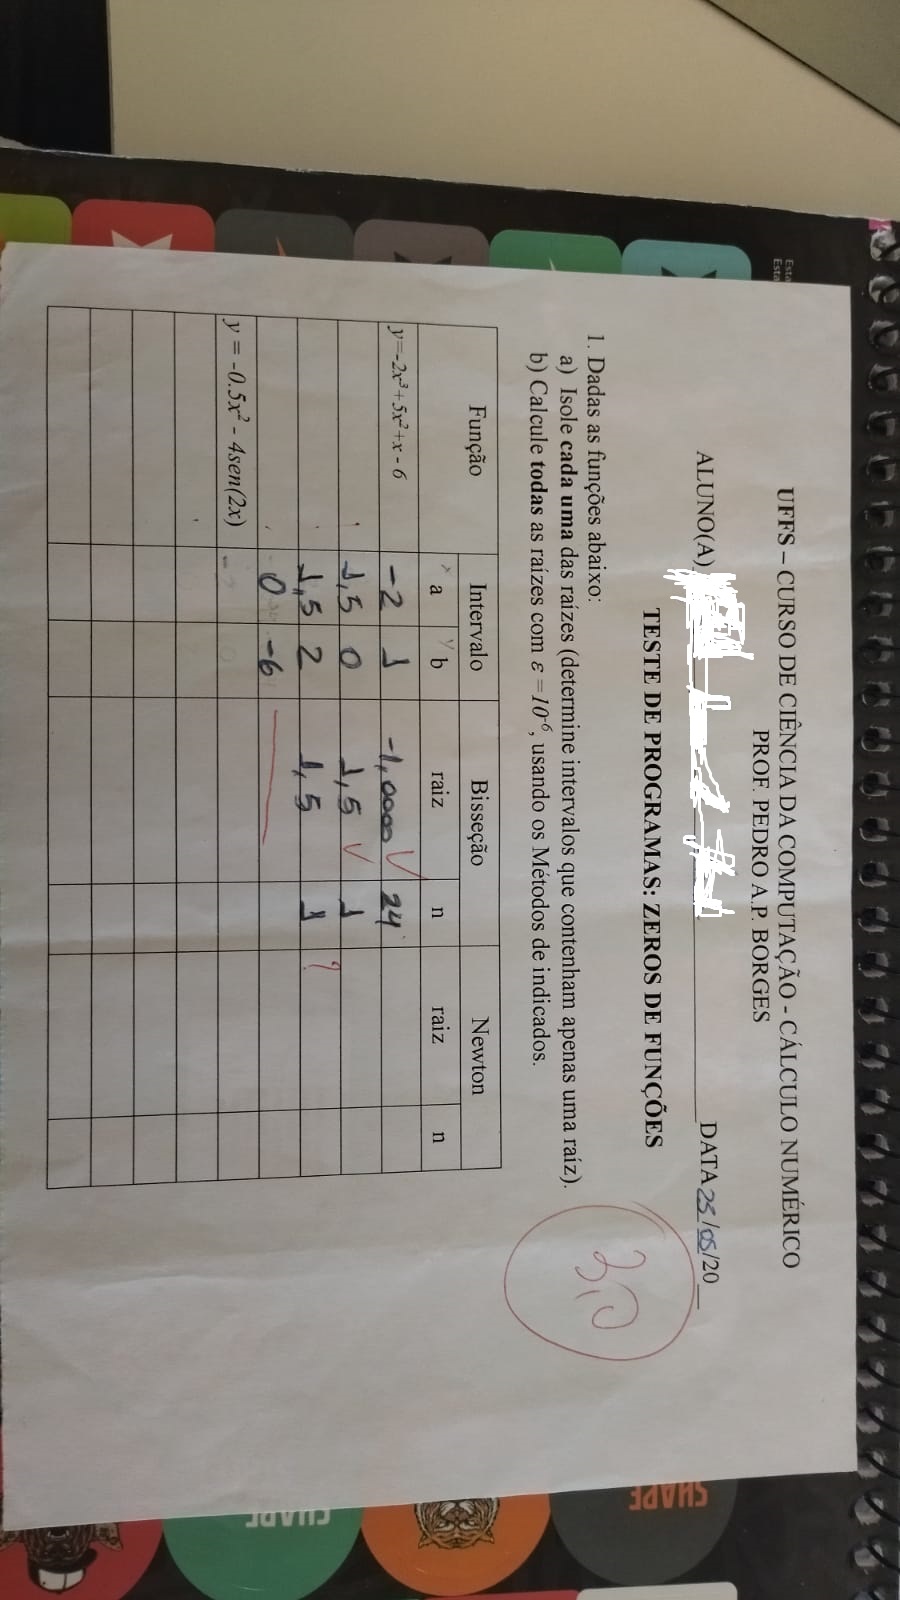 UFFS – CURSO DE CIÊNCIA DA COMPUTAÇÃO - CÁLCULO NUMÉRICO
PROF. PEDRO A.P. BORGES
ALUNO(A) DATA 25/05/20__
TESTE DE PROGRAMAS: ZEROS DE FUNÇÕES
3,0
1. Dadas as funções abaixo:
a) Isole cada uma das raízes (determine intervalos que contenham apenas uma raíz).
b) Calcule todas as raízes com ε = 10⁻⁶, usando os Métodos de indicados.
Função Intervalo Bisseção Newton
x a y b raiz n raiz n
y=-2x³+5x²+x-6 -2 1 -1,0000 24
1,5 0 1,5 1
1,5 2 1,5 1 ?
0 -6
y = -0.5x² - 4sen(2x)
Esta
Esta
SHARE
SHARE